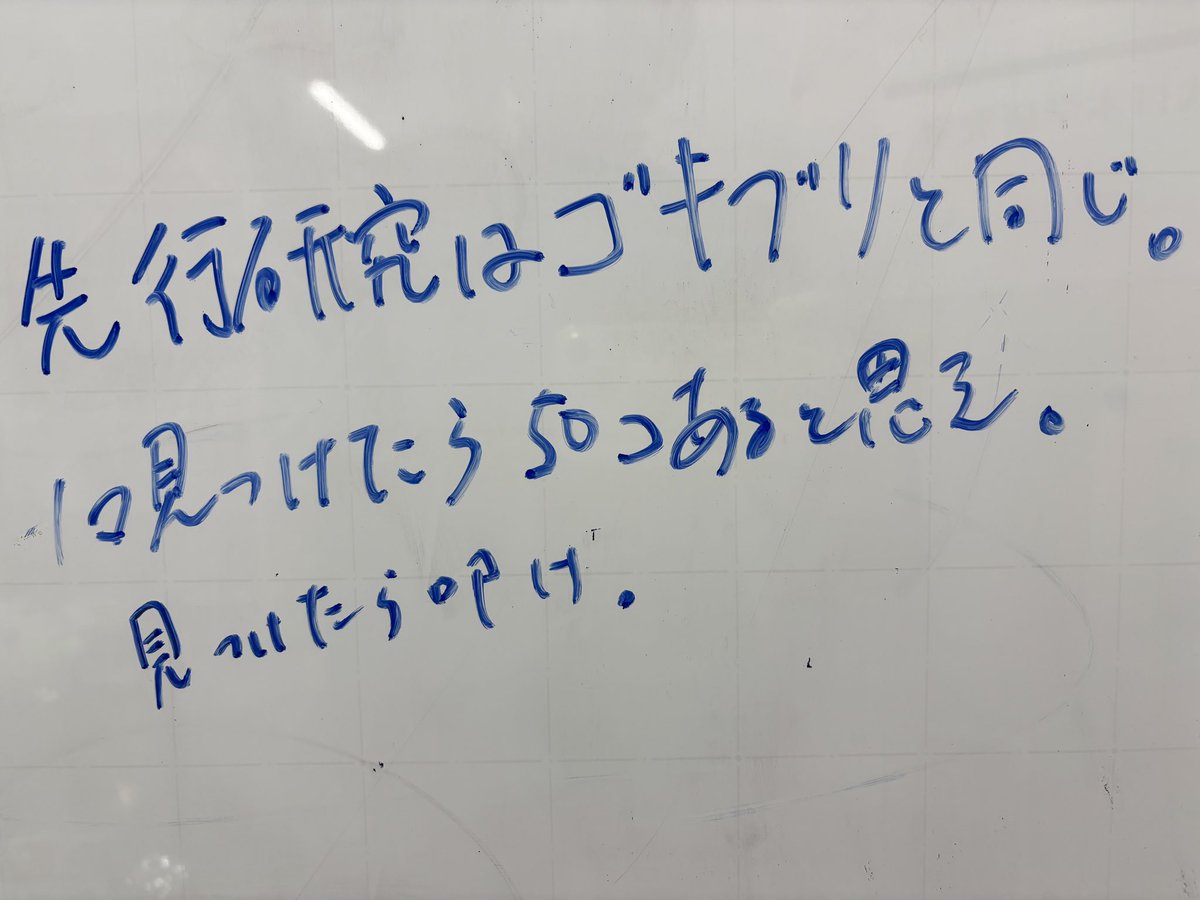 先行研究はゴキブリと同じ。
1つ見つけたら50つあると思え。
見つけたら叩け.